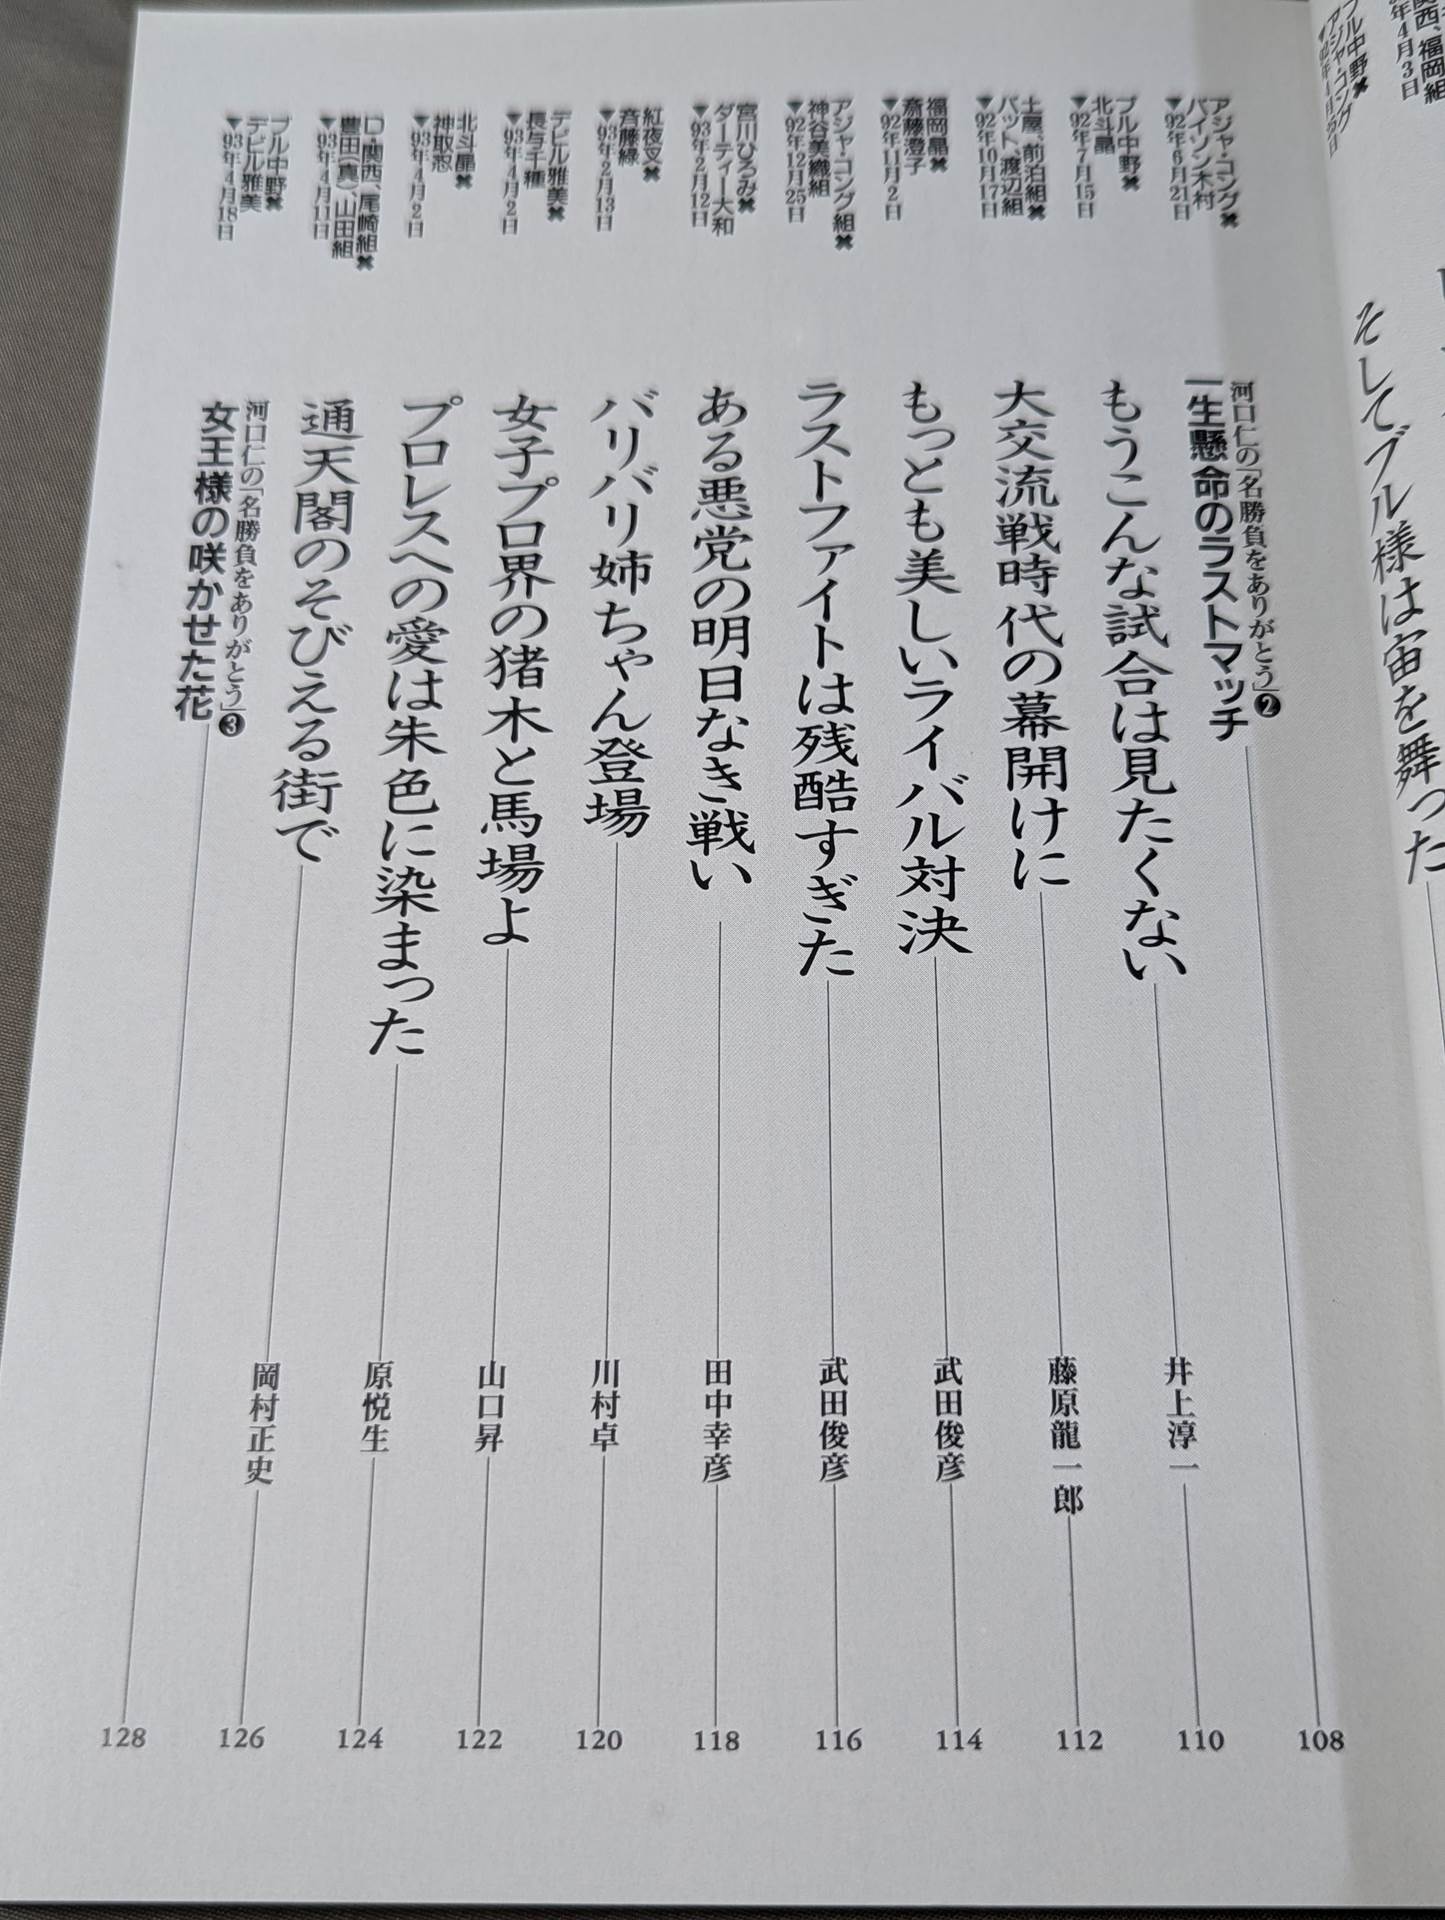 そしてブル様は宙を舞った
河口仁の「名勝負をありがとう」❷
一生懸命のラストマッチ
108
アジャ・コング✖
バイソン木村
▼92年6月21日
もうこんな試合は見たくない
井上淳一
110
ブル中野✖
北斗晶
▼92年7月15日
大交流戦時代の幕開けに
藤原龍一郎
112
土屋、前泊組✖
バット、渡辺組
▼92年10月17日
もっとも美しいライバル対決
武田俊彦
114
福岡晶✖
斎藤澄子
▼92年11月2日
ラストファイトは残酷すぎた
武田俊彦
116
アジャ・コング組✖
神谷美織組
▼92年12月25日
ある悪党の明日なき戦い
田中幸彦
118
宮川ひろみ✖
ダーティー大和
▼93年2月12日
バリバリ姉ちゃん登場
川村卓
120
紅夜叉✖
斉藤緑
▼93年2月13日
女子プロ界の猪木と馬場よ
山口昇
122
デビル雅美✖
長与千種
▼93年4月2日
プロレスへの愛は朱色に染まった
原悦生
124
北斗晶✖
神取忍
▼93年4月2日
通天閣のそびえる街で
岡村正史
126
関西、尾崎組✖
豊田(真)、山田組
▼93年4月11日
河口仁の「名勝負をありがとう」❸
女王様の咲かせた花
128
ブル中野✖
デビル雅美
▼93年4月18日